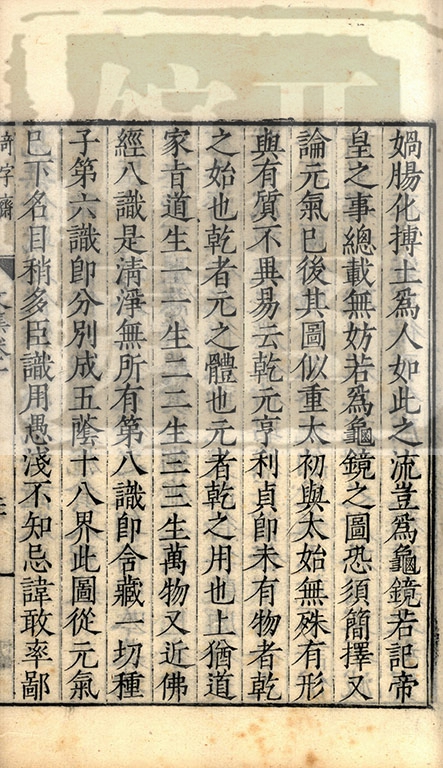 媧腸化摶土爲人如此之流豈爲龜鏡若記帝
皇之事總載無妨若爲龜鏡之圖恐須簡擇又
論元氣已後其圖似重太初與太始無殊有形
與有質不異易云乾元亨利貞即未有物者乾
之始也乾者元之體也元者乾之用也上猶道
家言道生一一生二二生三三生萬物又近佛
經八識是清淨無所有第八識即含藏一切種
子第六識即分別成五蔭十八界此圖從元氣
已下名目稍多臣識用愚淺不知忌諱敢率鄙
奇字齋